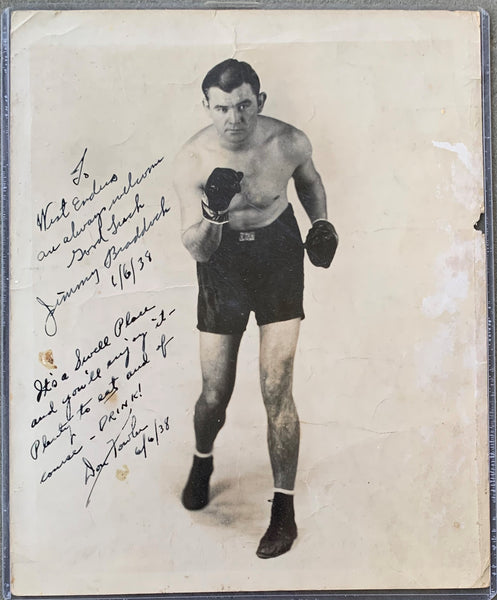 To
West Enders
are always welcome
Good Luck
Jimmy Braddock
6/6/38
Its a Swell Place
and you'll enjoy it -
Plenty to eat and of
course - DRINK!
Doc
6/6/38